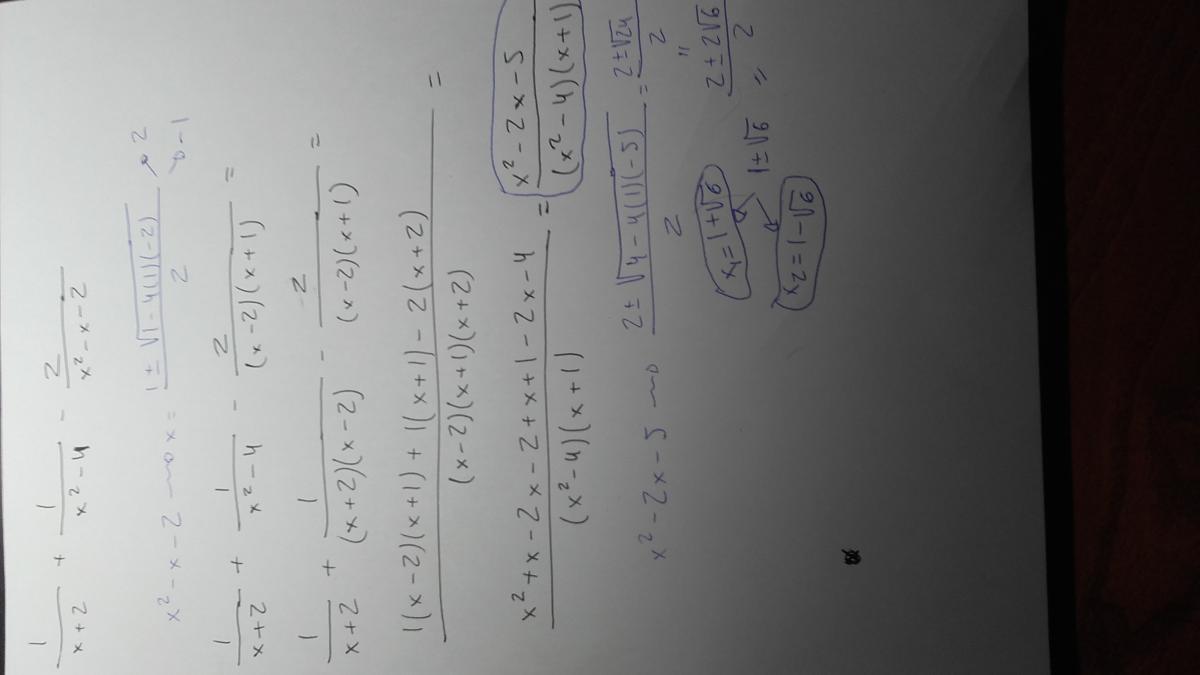 1/(x+2) + 1/(x²-4) - 2/(x²-x-2)
x²-x-2 ⟿ x = (1 ± √(1-4(1)(-2)))/2 ↗ 2 ↘ -1
1/(x+2) + 1/(x²-4) - 2/((x-2)(x+1)) =
1/(x+2) + 1/((x+2)(x-2)) - 2/((x-2)(x+1)) =
(1(x-2)(x+1) + 1(x+1) - 2(x+2))/((x-2)(x+1)(x+2)) =
(x²+x-2x-2+x+1-2x-4)/((x²-4)(x+1)) = (x²-2x-5)/((x²-4)(x+1))
x²-2x-5 ⟿ (2 ± √(4-4(1)(-5)))/2 = (2±√24)/2
= (2±2√6)/2
= 1±√6
x₁=1+√6
x₂=1-√6